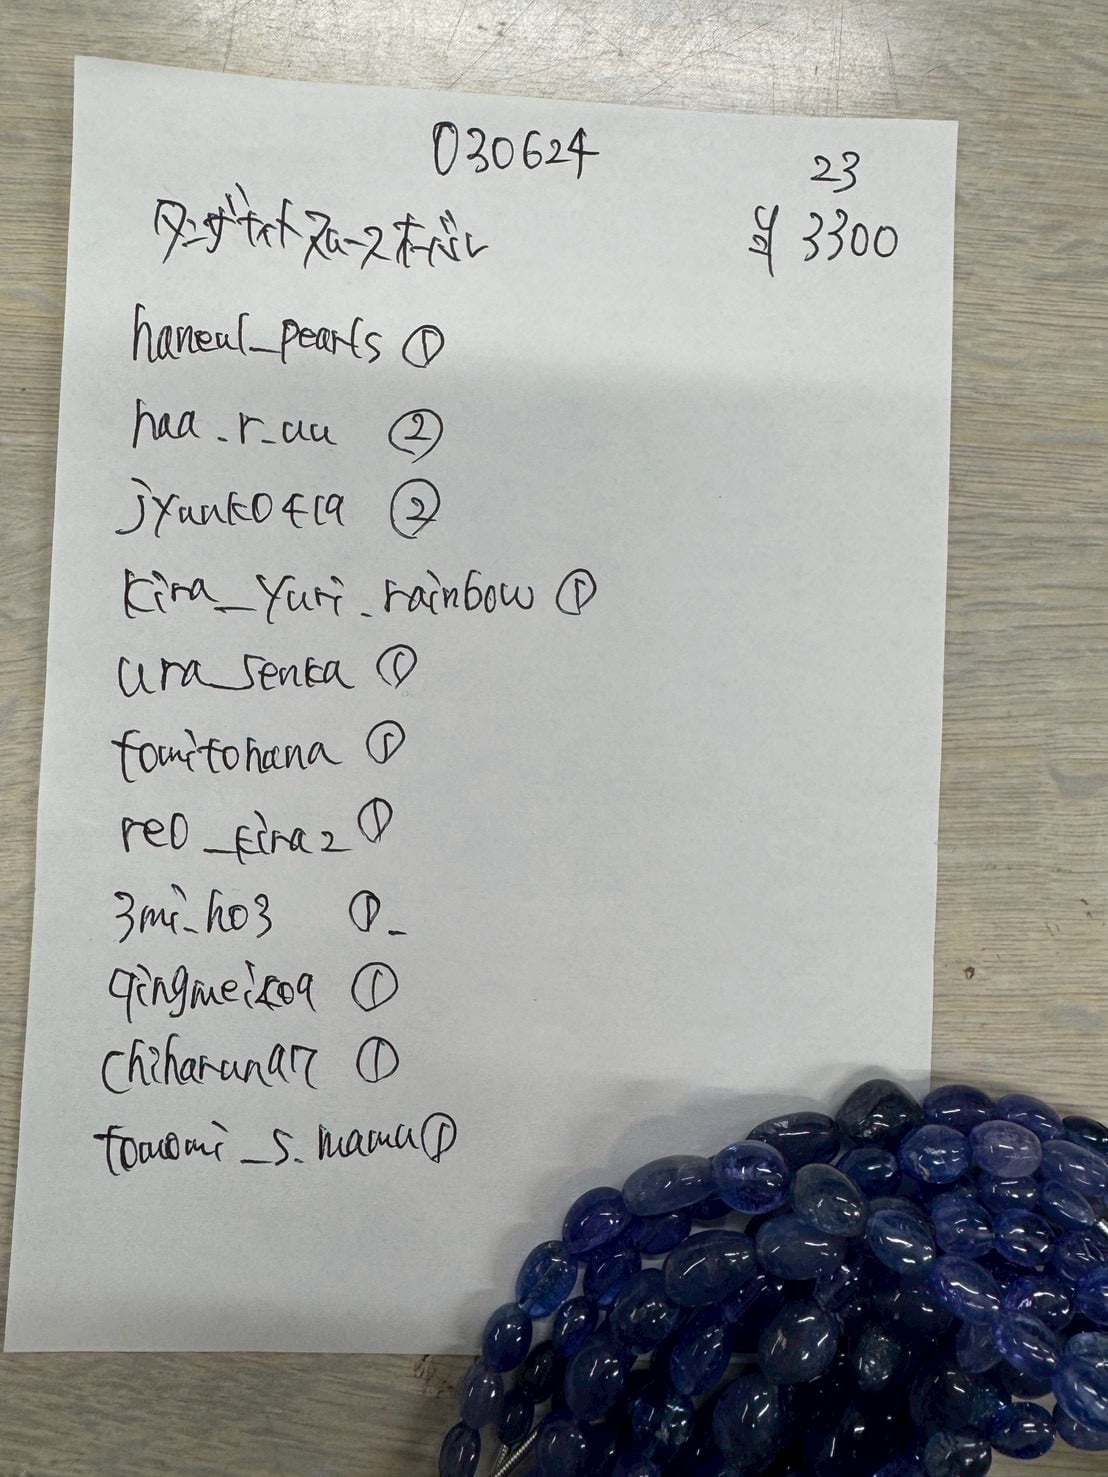 030624
23
タンザナイトスムースオーバル
¥ 3300
haneul_pearls ①
haa_r_uu ②
jyunko419 ②
kira_yuri_rainbow ①
ura_senka ①
tomitohana ①
reo_kira2 ①
3mi_ho3 ①
qingmeiko9 ①
chiharuna17 ①
tomomi_s.mama ①